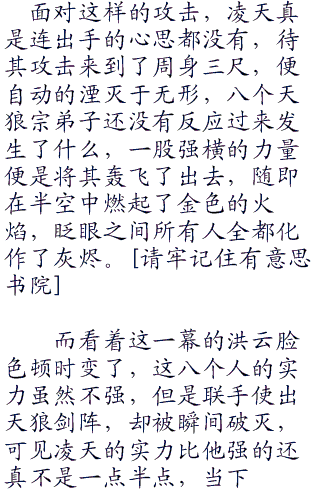 面对这样的攻击，凌天真
是连出手的心思都没有，待
其攻击来到了周身三尺，便
自动的湮灭于无形，八个天
狼宗弟子还没有反应过来发
生了什么，一股强横的力量
便是将其轰飞了出去，随即
在半空中燃起了金色的火
焰，眨眼之间所有人全都化
作了灰烬。[请牢记住有意思
书院]
而看着这一幕的洪云脸
色顿时变了，这八个人的实
力虽然不强，但是联手使出
天狼剑阵，却被瞬间破灭，
可见凌天的实力比他强的还
真不是一点半点，当下